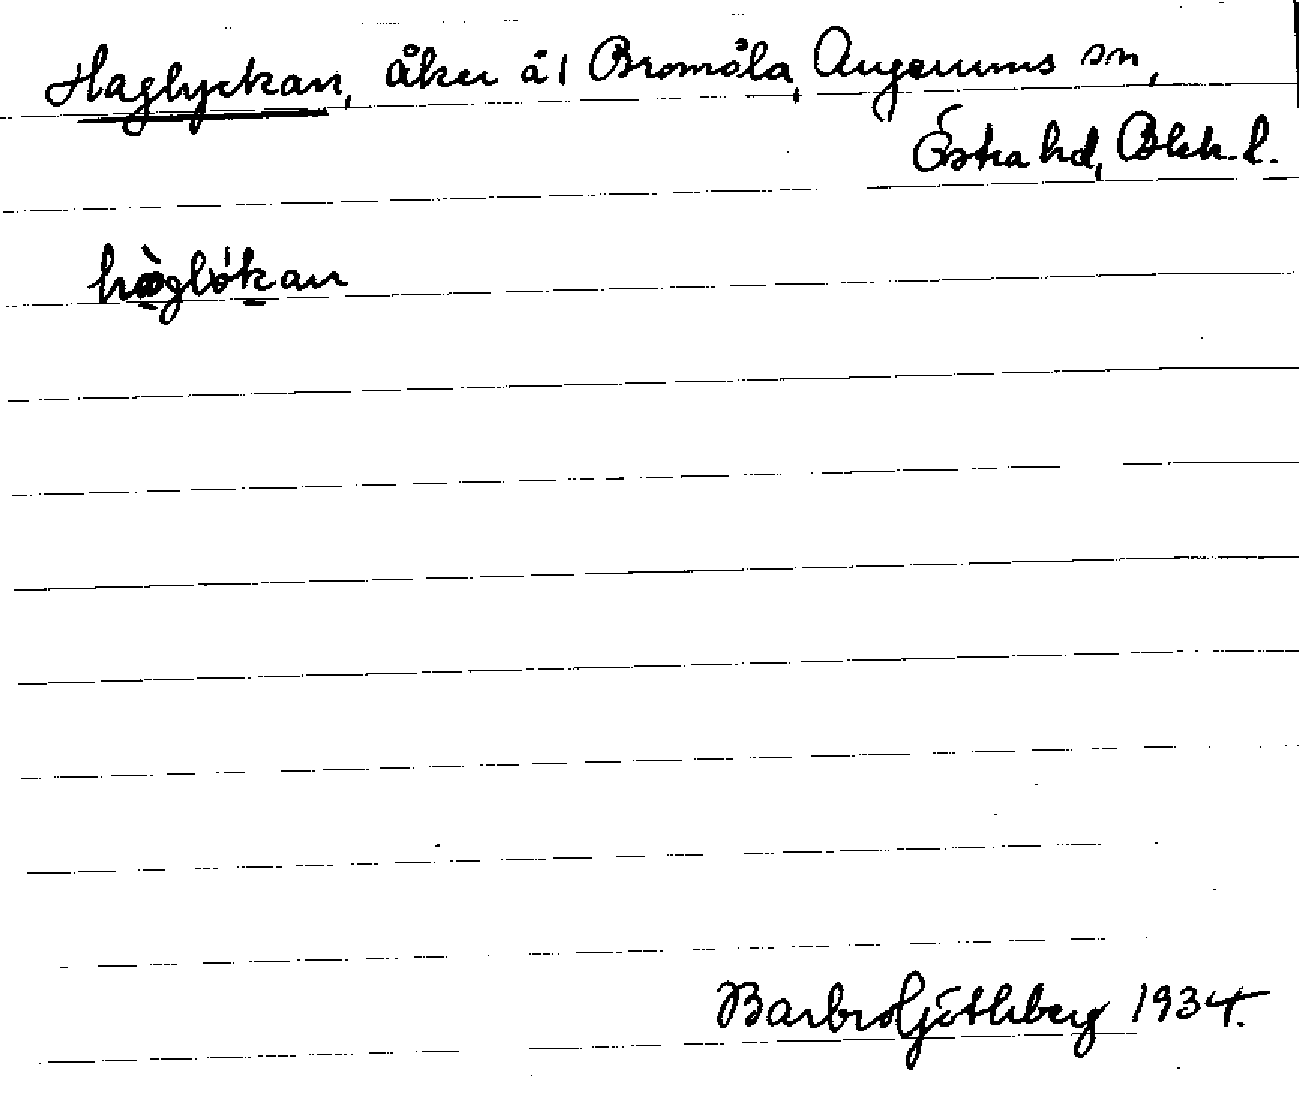 Haglyckan, åker å 1 Bromåla, Augerums sn,
Östra hd, Blek. l.
hòglókan
Barbro Götlberg 1934.